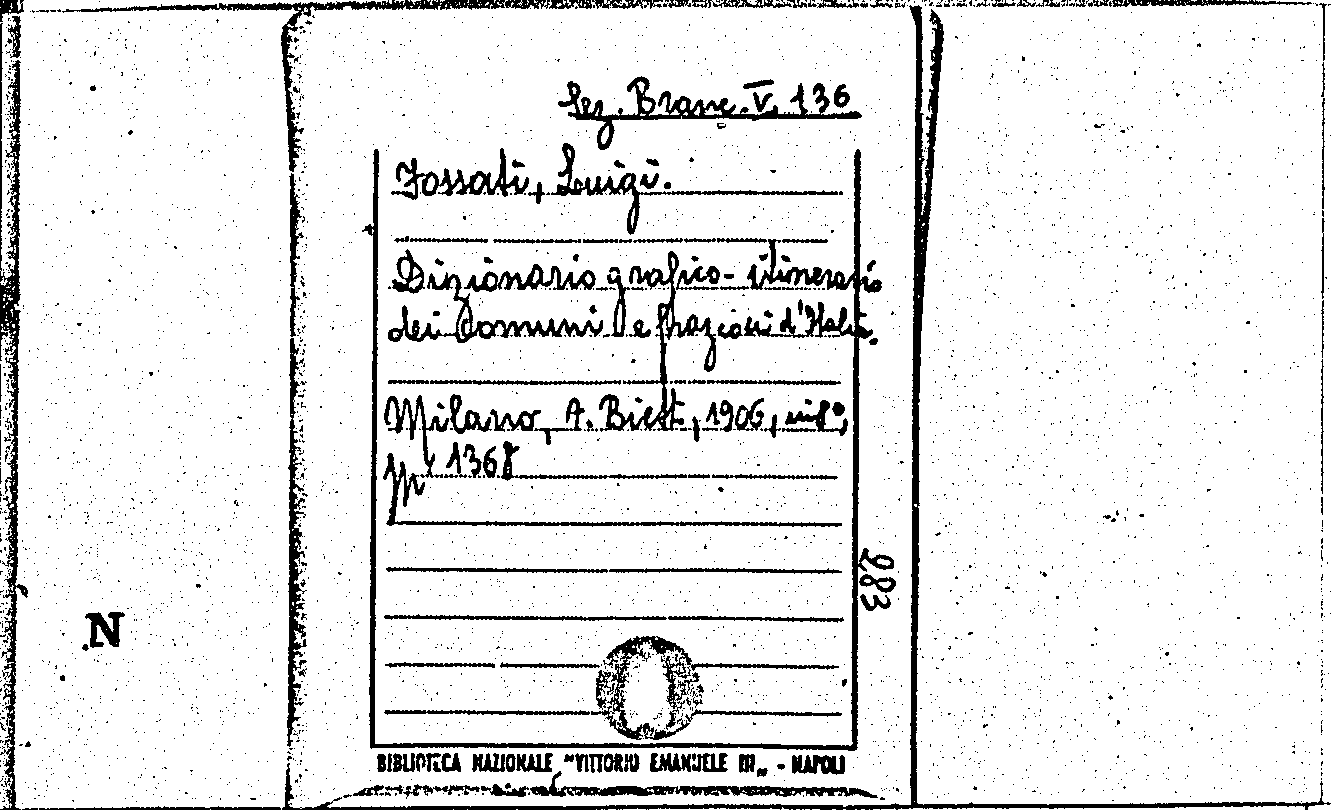 Sez. Branc. V. 136
Fossati, Luigi.
Dizionario grafico-itinerario
dei Comuni e frazioni d'Italia.
Milano, A. Biett, 1906, in 8°,
1368
283
N
BIBLIOTECA NAZIONALE "VITTORIO EMANUELE III" - NAPOLI